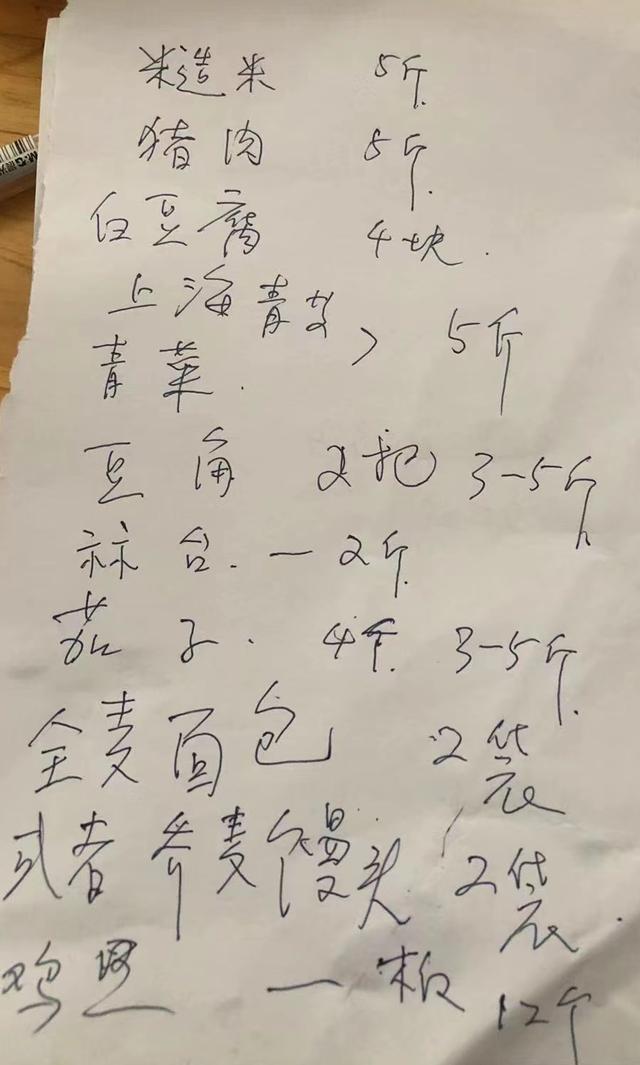 糙米 5斤.
猪肉 5斤.
白豆腐 4块.
上海青
青菜. 5斤
豆角 2把 3-5斤
蒜台. 一2斤.
茄子. 4个. 3-5斤.
全麦面包 2袋
或者荞麦馒头 2袋.
鸡蛋 一板 12个
M&G